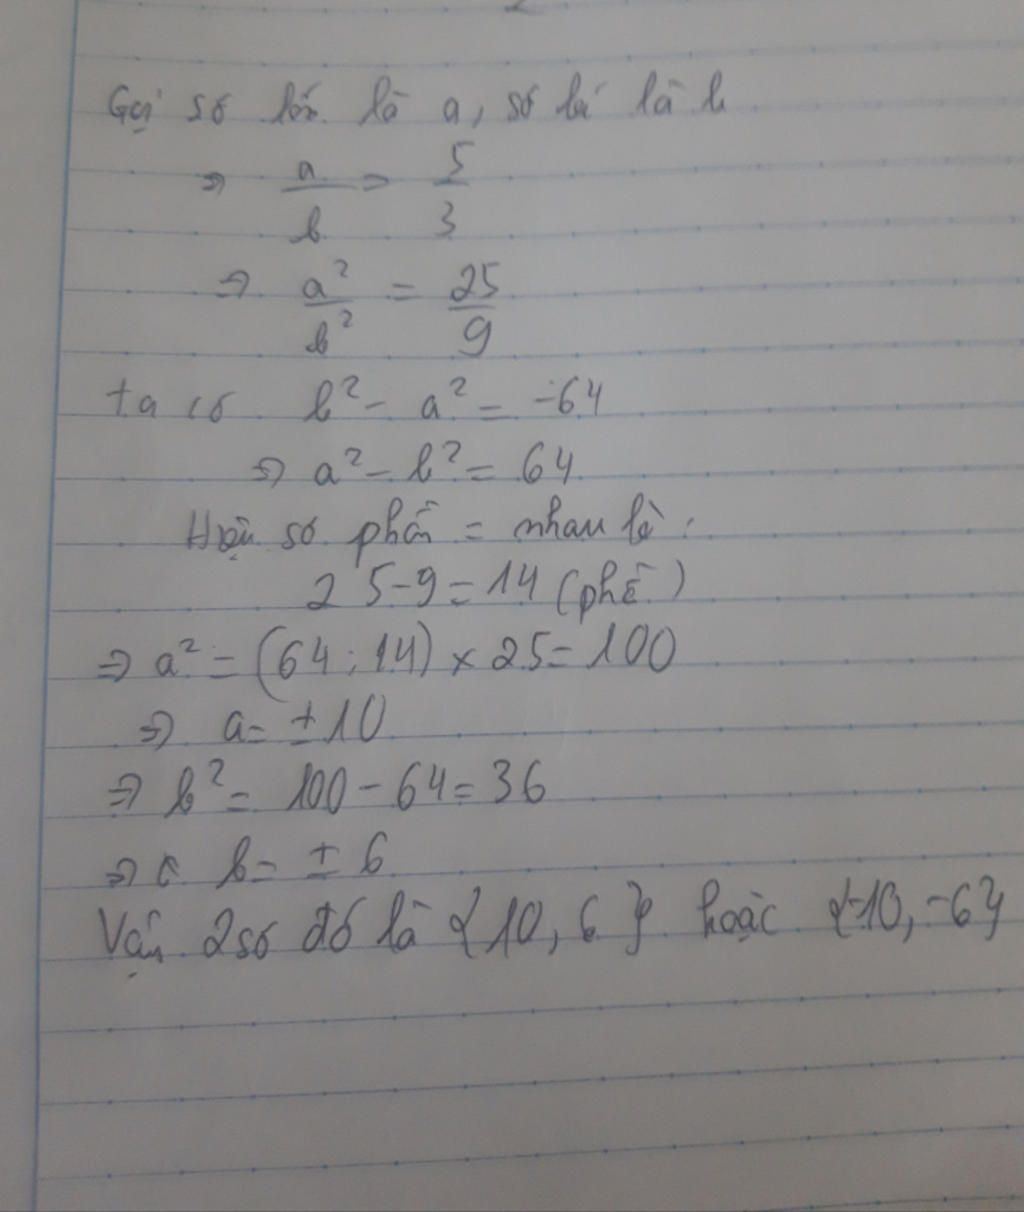 Gọi số lớn là a, số bé là b
⇒ a/b = 5/3
⇒ a²/b² = 25/9
ta có b² - a² = -64
⇒ a² - b² = 64
Hiệu số phần = nhau là:
25-9=14 (phần)
⇒ a² = (64:14) × 25 = 100
⇒ a = ±10
⇒ b² = 100 - 64 = 36
⇒ b = ± 6
Vậy 2 số đó là {10, 6} hoặc {-10, -6}